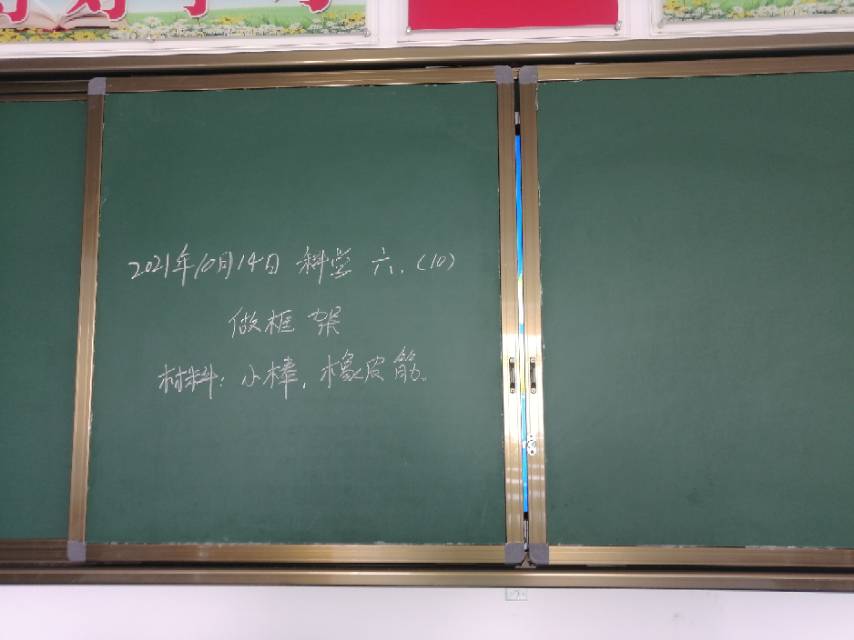 2021年10月14日 科学 六.(10)
做框架
材料:小棒,橡皮筋。